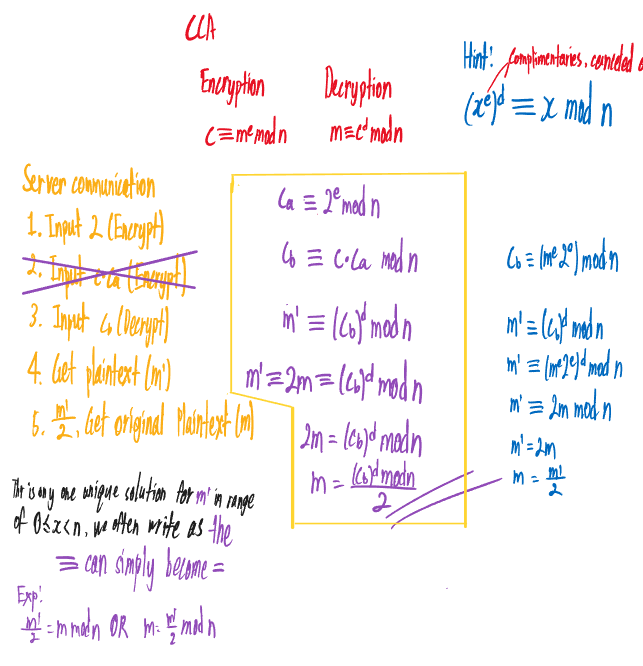 CCA
Encryption
c ≡ mᵉ mod n
Decryption
m ≡ cᵈ mod n
Hint:
Complimentaries, canceled
(xᵉ)ᵈ ≡ x mod n
Server communication
1. Input 2 (Encrypt)
2. Input c·Ca (Encrypt)
3. Input Cb (Decrypt)
4. Get plaintext (m')
5. m'/2, Get original Plaintext (m)
Ca ≡ 2ᵉ mod n
Cb ≡ C·Ca mod n
m' ≡ (Cb)ᵈ mod n
m' ≡ 2m ≡ (Cb)ᵈ mod n
2m = (Cb)ᵈ mod n
m = (Cb)ᵈ mod n / 2
Cb ≡ (mᵉ 2ᵉ) mod n
m' ≡ (Cb)ᵈ mod n
m' ≡ (mᵉ2ᵉ)ᵈ mod n
m' ≡ 2m mod n
m' = 2m
m = m'/2
is only one unique solution for m' in range
of 0 ≤ x < n, we often write as the
≡ can simply become =
Exp:
m'/2 = m mod n OR m = m'/2 mod n